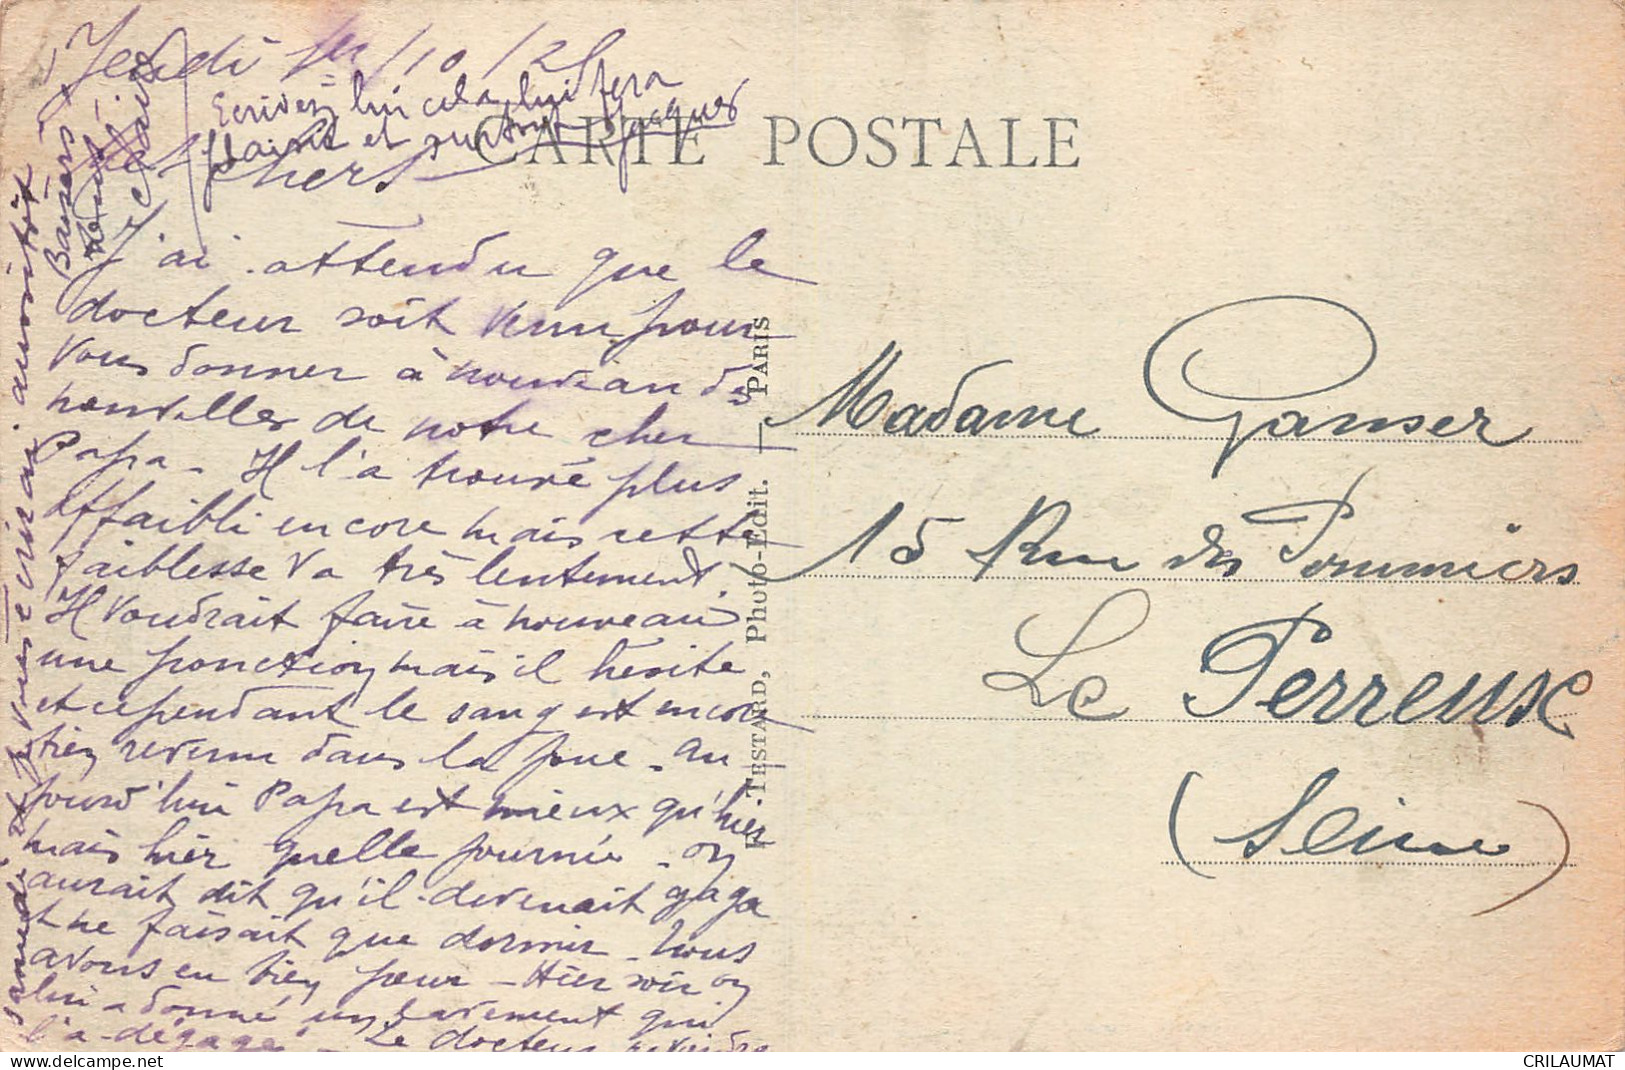 Jeudi 1er/10/25
Ecrivez lui cela lui fera
plaisir et surtout Jacques
CARTE POSTALE
chers
J'ai attendu que le
docteur soit venu pour
vous donner à nouveau des
nouvelles de notre cher
Papa - Il l'a trouvé plus
affaibli encore mais cette
faiblesse va très lentement.
Il voudrait faire à nouveau
une ponction mais il hésite
et cependant le sang est encore
bien revenu dans la joue - au
jourd'hui Papa est mieux qu'hier
mais hier quelle journée - on
aurait dit qu'il devenait gaga
et ne faisait que dormir - Nous
avons eu bien peur - Hier soir on
lui a donné un lavement qui
l'a dégagé - Le docteur reviendra
samedi et je vous écrirai aussitôt
Baisers
F. TESTARD, Photo-Edit. — PARIS
Madame Ganser
15 Rue des Pommiers
Le Perreux
(Seine)
delcampe.net
CRILAUMAT